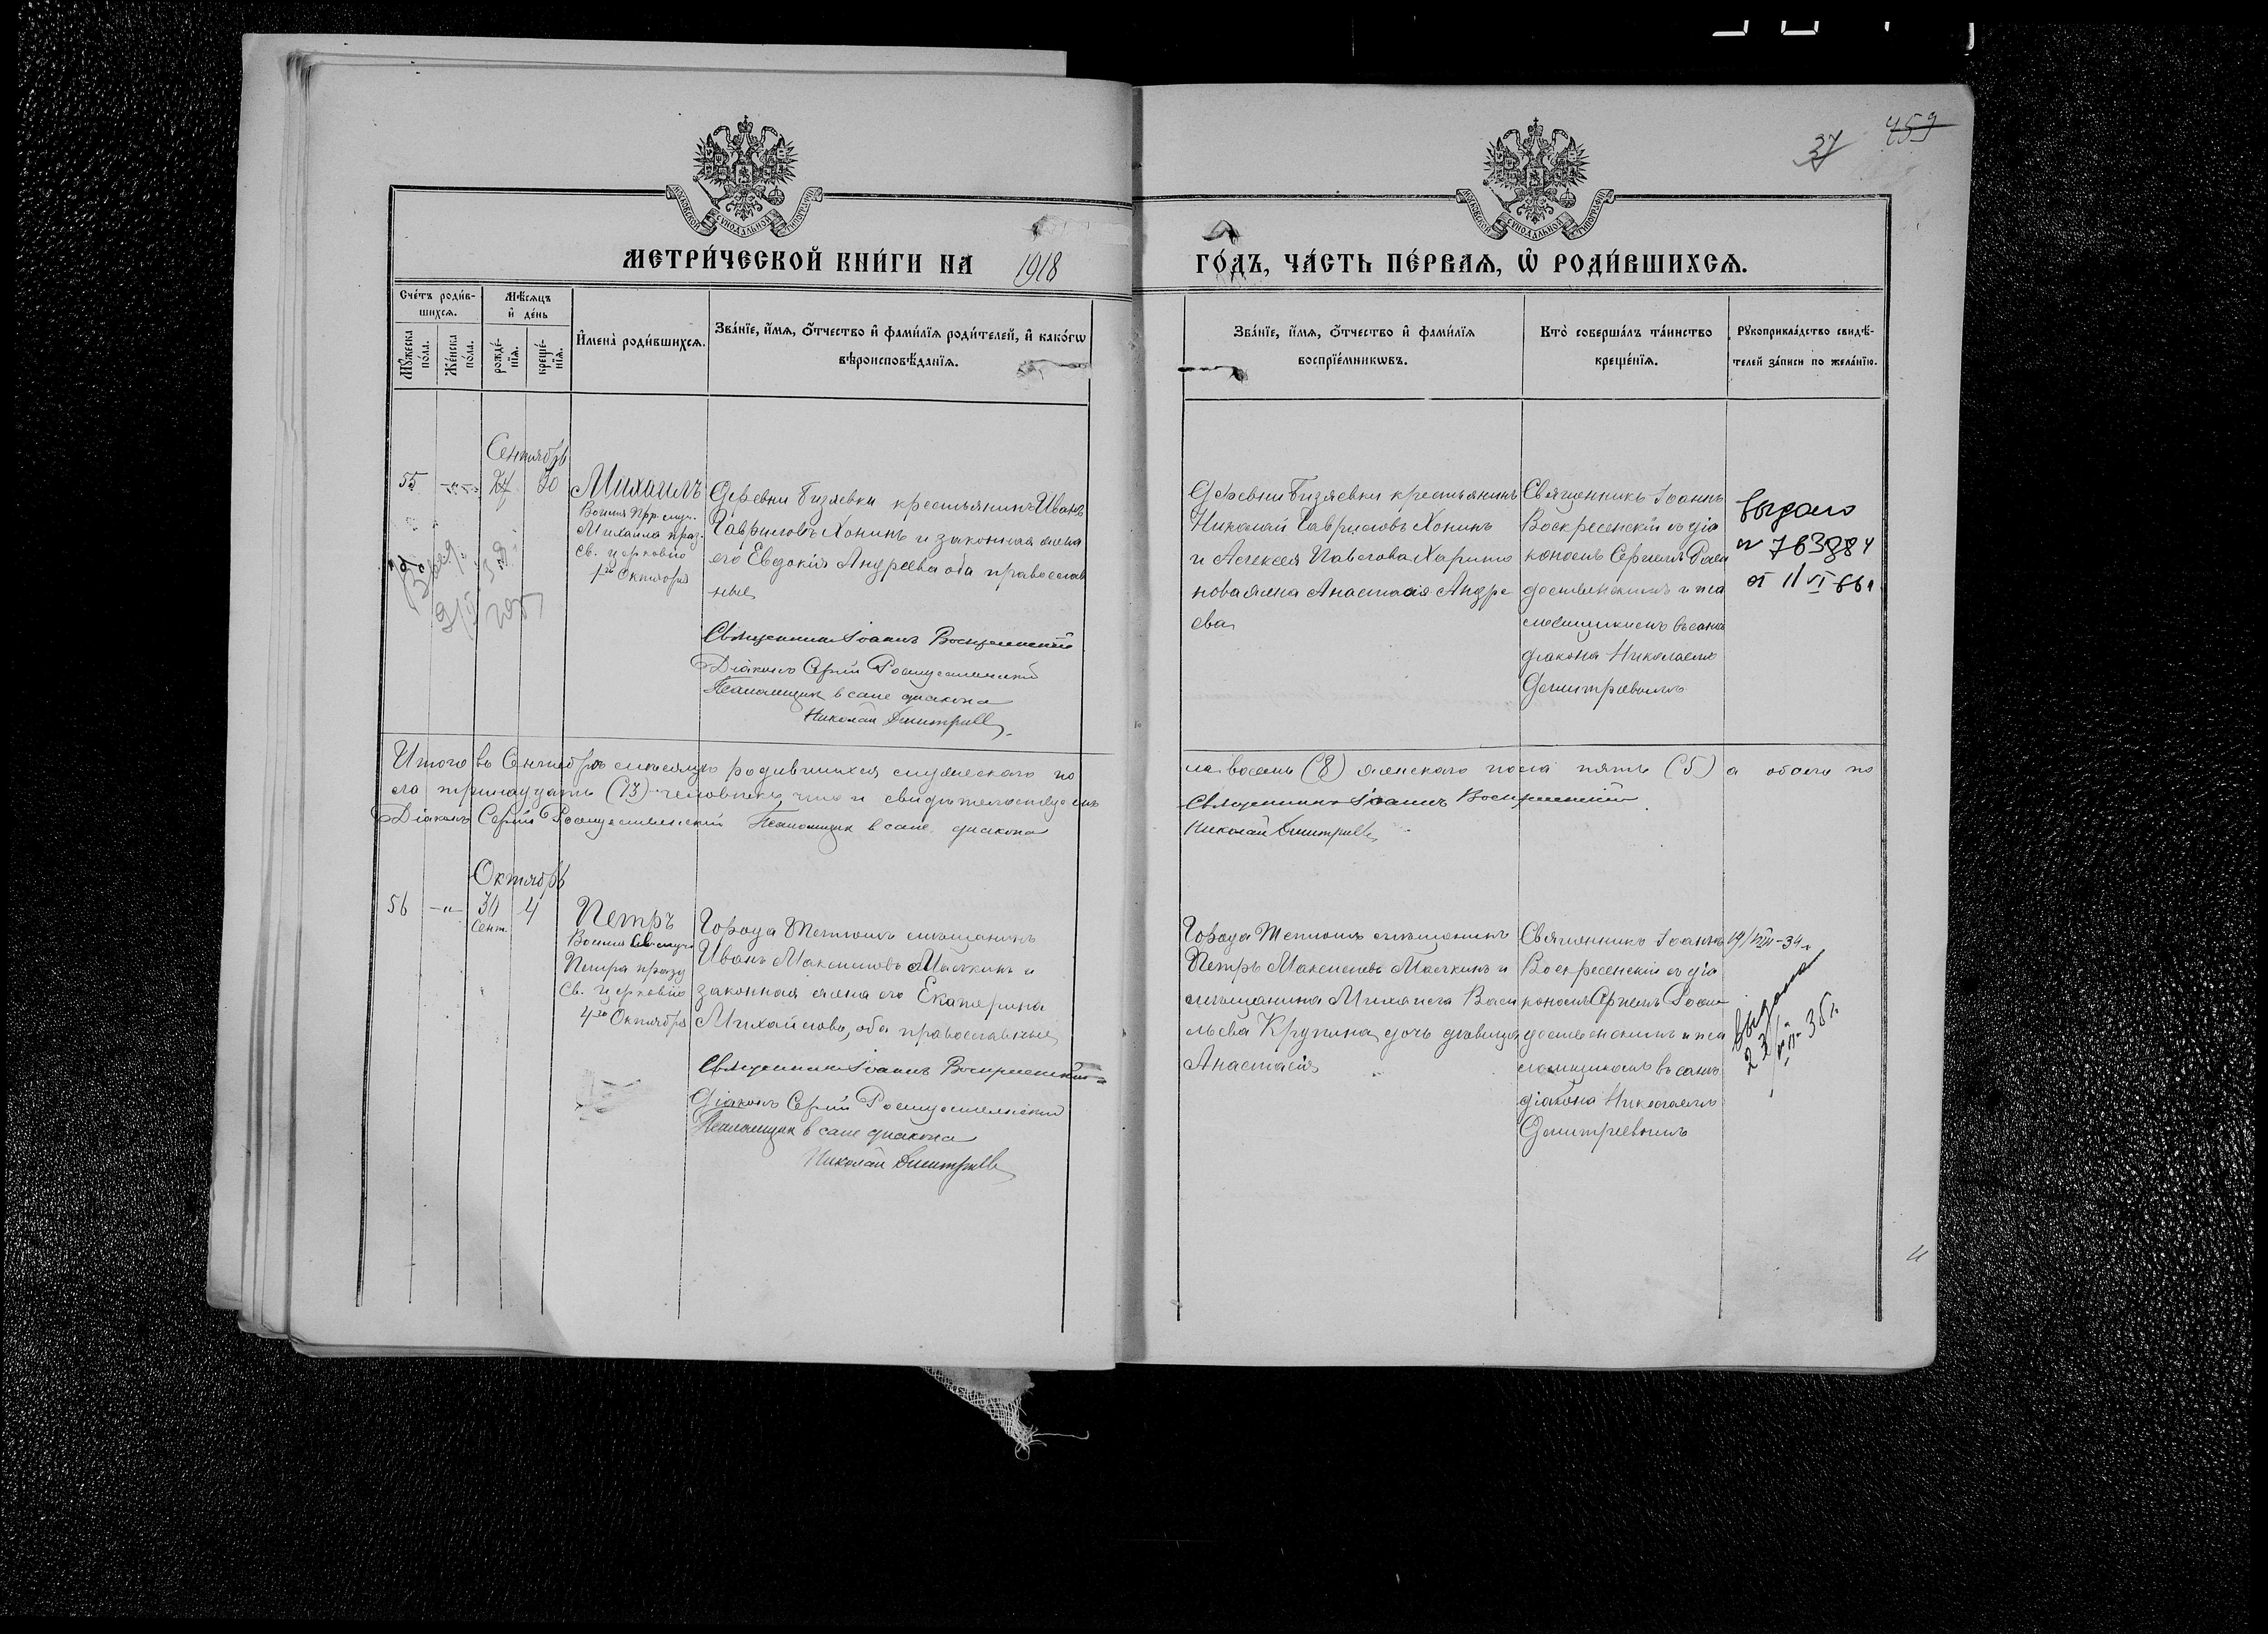 37 459
МОСКОВСКОЙ СУНОДАЛЬНОЙ ТИПОГРАФІИ
МОСКОВСКОЙ СУНОДАЛЬНОЙ ТИПОГРАФІИ
МЕТРИ́ЧЕСКОЙ КНИ́ГИ НА 1918 ГО́ДЪ, ЧА́СТЬ ПЕ́РВАЯ, Ѡ РОДИ́ВШИХСЯ.
Сче́тъ роди́в-
шихся.
Мꙋжеска по́ла.
Же́нска по́ла.
Мѣ́сяцъ
и҆ де́нь
рожде́-
нїя.
креще́-
нїя.
И҆мена̀ роди́вшихся.
Зва́нїе, и҆́мя, о҆́тчество и҆ фами́лїя роди́телей, и҆ како́гѡ
вѣроисповѣ́данїя.
Зва́нїе, и҆́мя, о҆́тчество и҆ фами́лїя
воспрїе́мникѡвъ.
Кто̀ соверша́лъ та́инство
креще́нїя.
Рꙋкоприкла́дство свидѣ́-
телей за́писи по жела́нїю.
Сентябрь
55 —"— 24 30
Михаилъ
Михаила праз.
св. церковію
1го Октября
Деревни Бизяевки крестьянинъ Иванъ
Гавриловъ Хонинъ и законная жена
его Евдокія Андреева оба православ
ные
Священникъ Іоаннъ Воскресенскій
Діаконъ Сергій Рождественскій
Псаломщик в сане диакона
Николай Димитриев
Деревни Бизяевки крестьянинъ
Николай Гавриловъ Хонинъ
и Алексея Павлова Харито
нова жена Анастасія Андре
ева
Священникъ Іоаннъ
Воскресенскій съ діа
кономъ Сергіемъ Рож
дественскимъ и пса
ломщикомъ въ санѣ
діакона Николаемъ
Димитріевымъ
Выдано
№ 763984
от 11/VI-66 г.
Итого въ Сентябрѣ мѣсяцѣ родившихся мужескаго по
ла восемь (8) женскаго пола пять (5) а обоего по
ла тринадцать (13) человѣкъ, что и свидѣтельствуемъ
Священникъ Іоаннъ Воскресенскій
Діаконъ Сергій Рождественскій Псаломщик в сане диакона
Николай Димитриев
Октябрь
56 —"— 30 4
Сент.
Петръ
Петра празд
св. церковію
4го Октября
Города Тетюшъ мѣщанинъ
Иванъ Максимовъ Малкинъ и
законная жена его Екатерина
Михайлова, оба православные
Священникъ Іоаннъ Воскресенскій
Діаконъ Сергій Рождественскій
Псаломщик в сане диакона
Николай Димитриев
Города Тетюшъ мѣщанинъ
Петръ Максимовъ Малкинъ и
мѣщанина Михаила Васи
льева Крупина дочь дѣвица
Анастасія
Священникъ Іоаннъ
Воскресенскій съ діа
кономъ Сергіемъ Рож
дественскимъ и пса
ломщикомъ въ санѣ
діакона Николаемъ
Димитріевымъ
19/VIII-34 г
Выдана